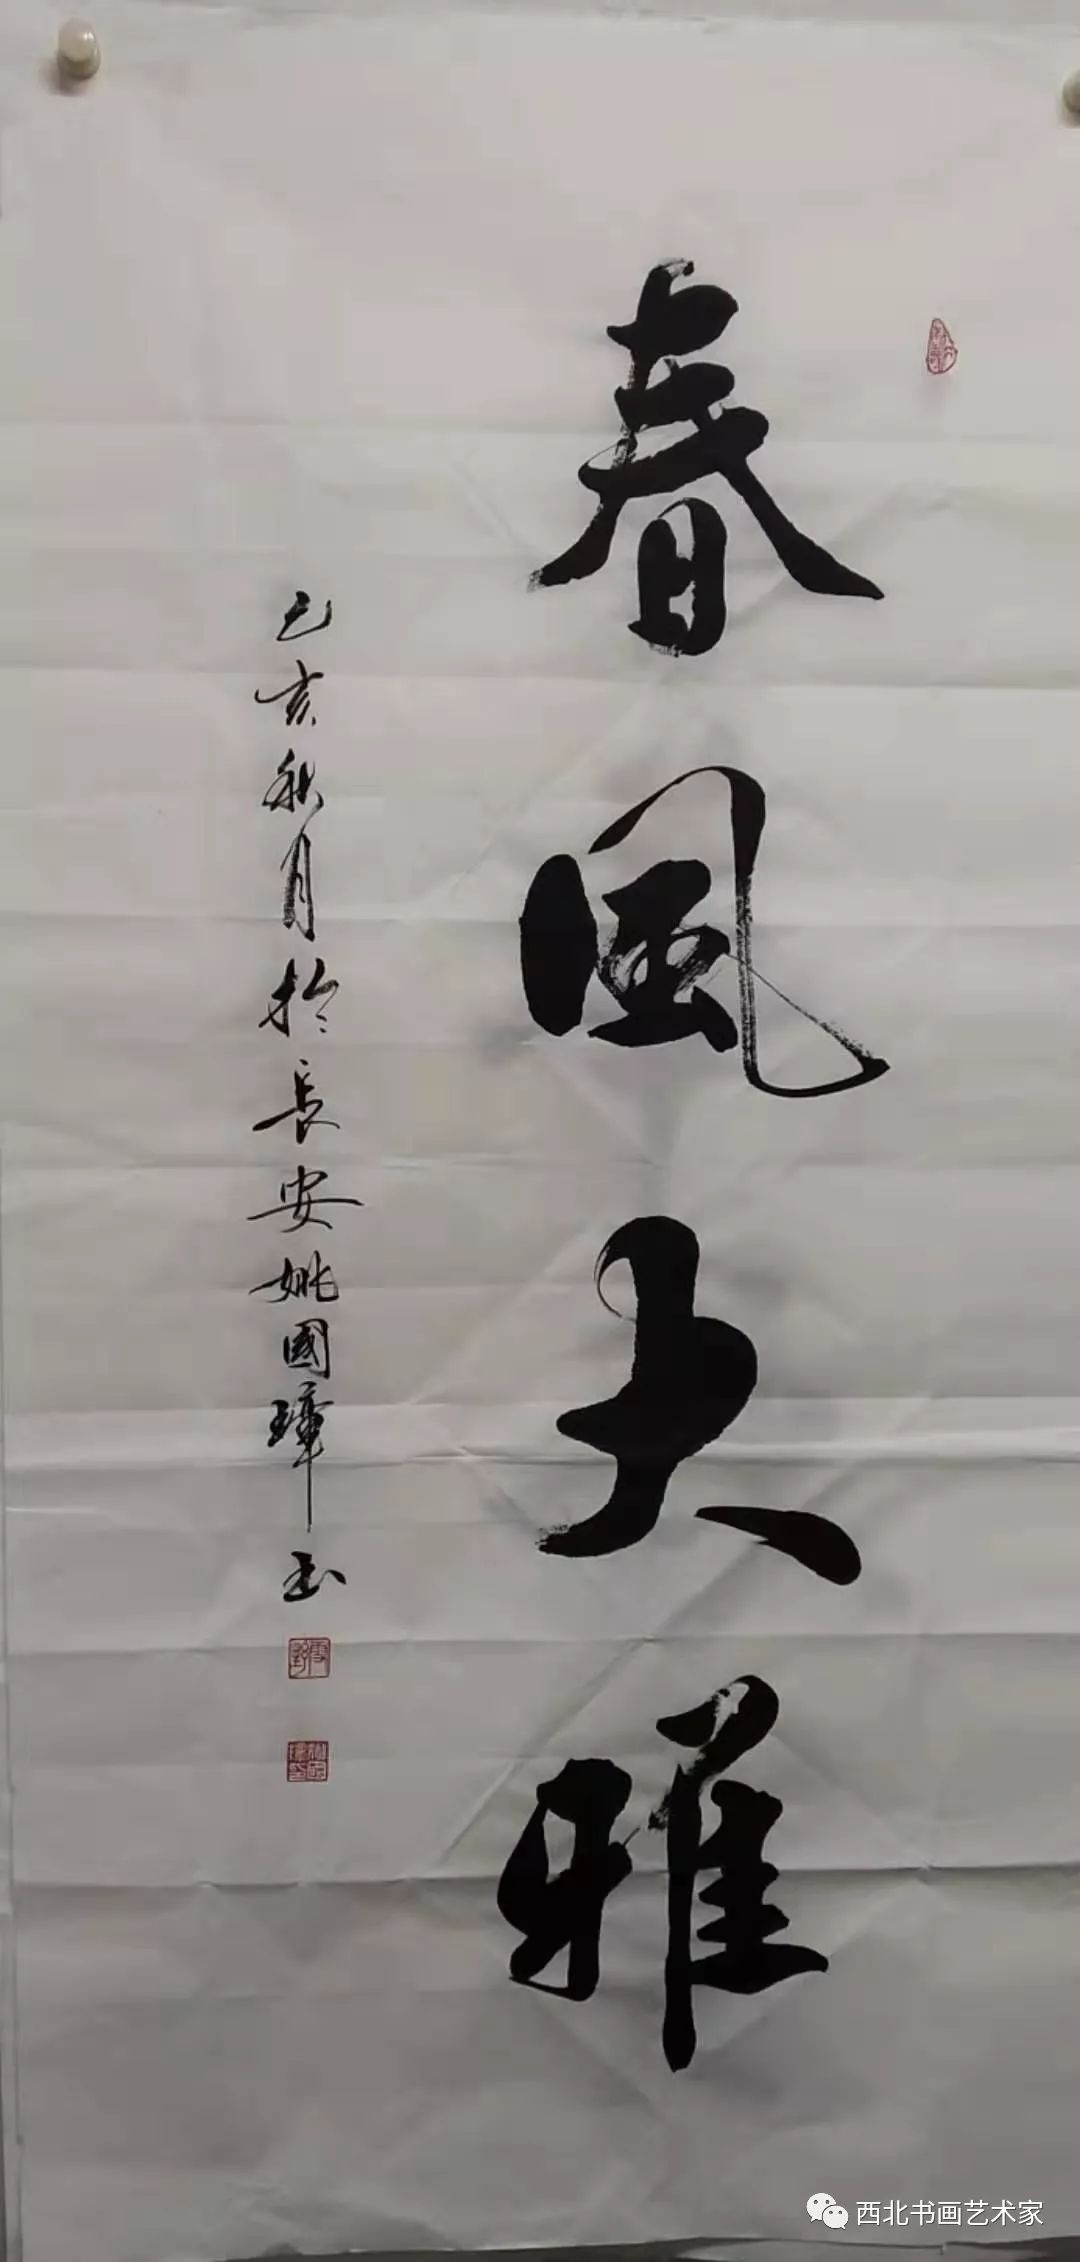 春风大雅
己亥秋月於長安姚國璋书
西北书画艺术家